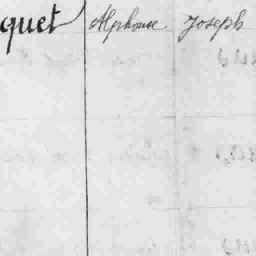 quet Alphonse Joseph